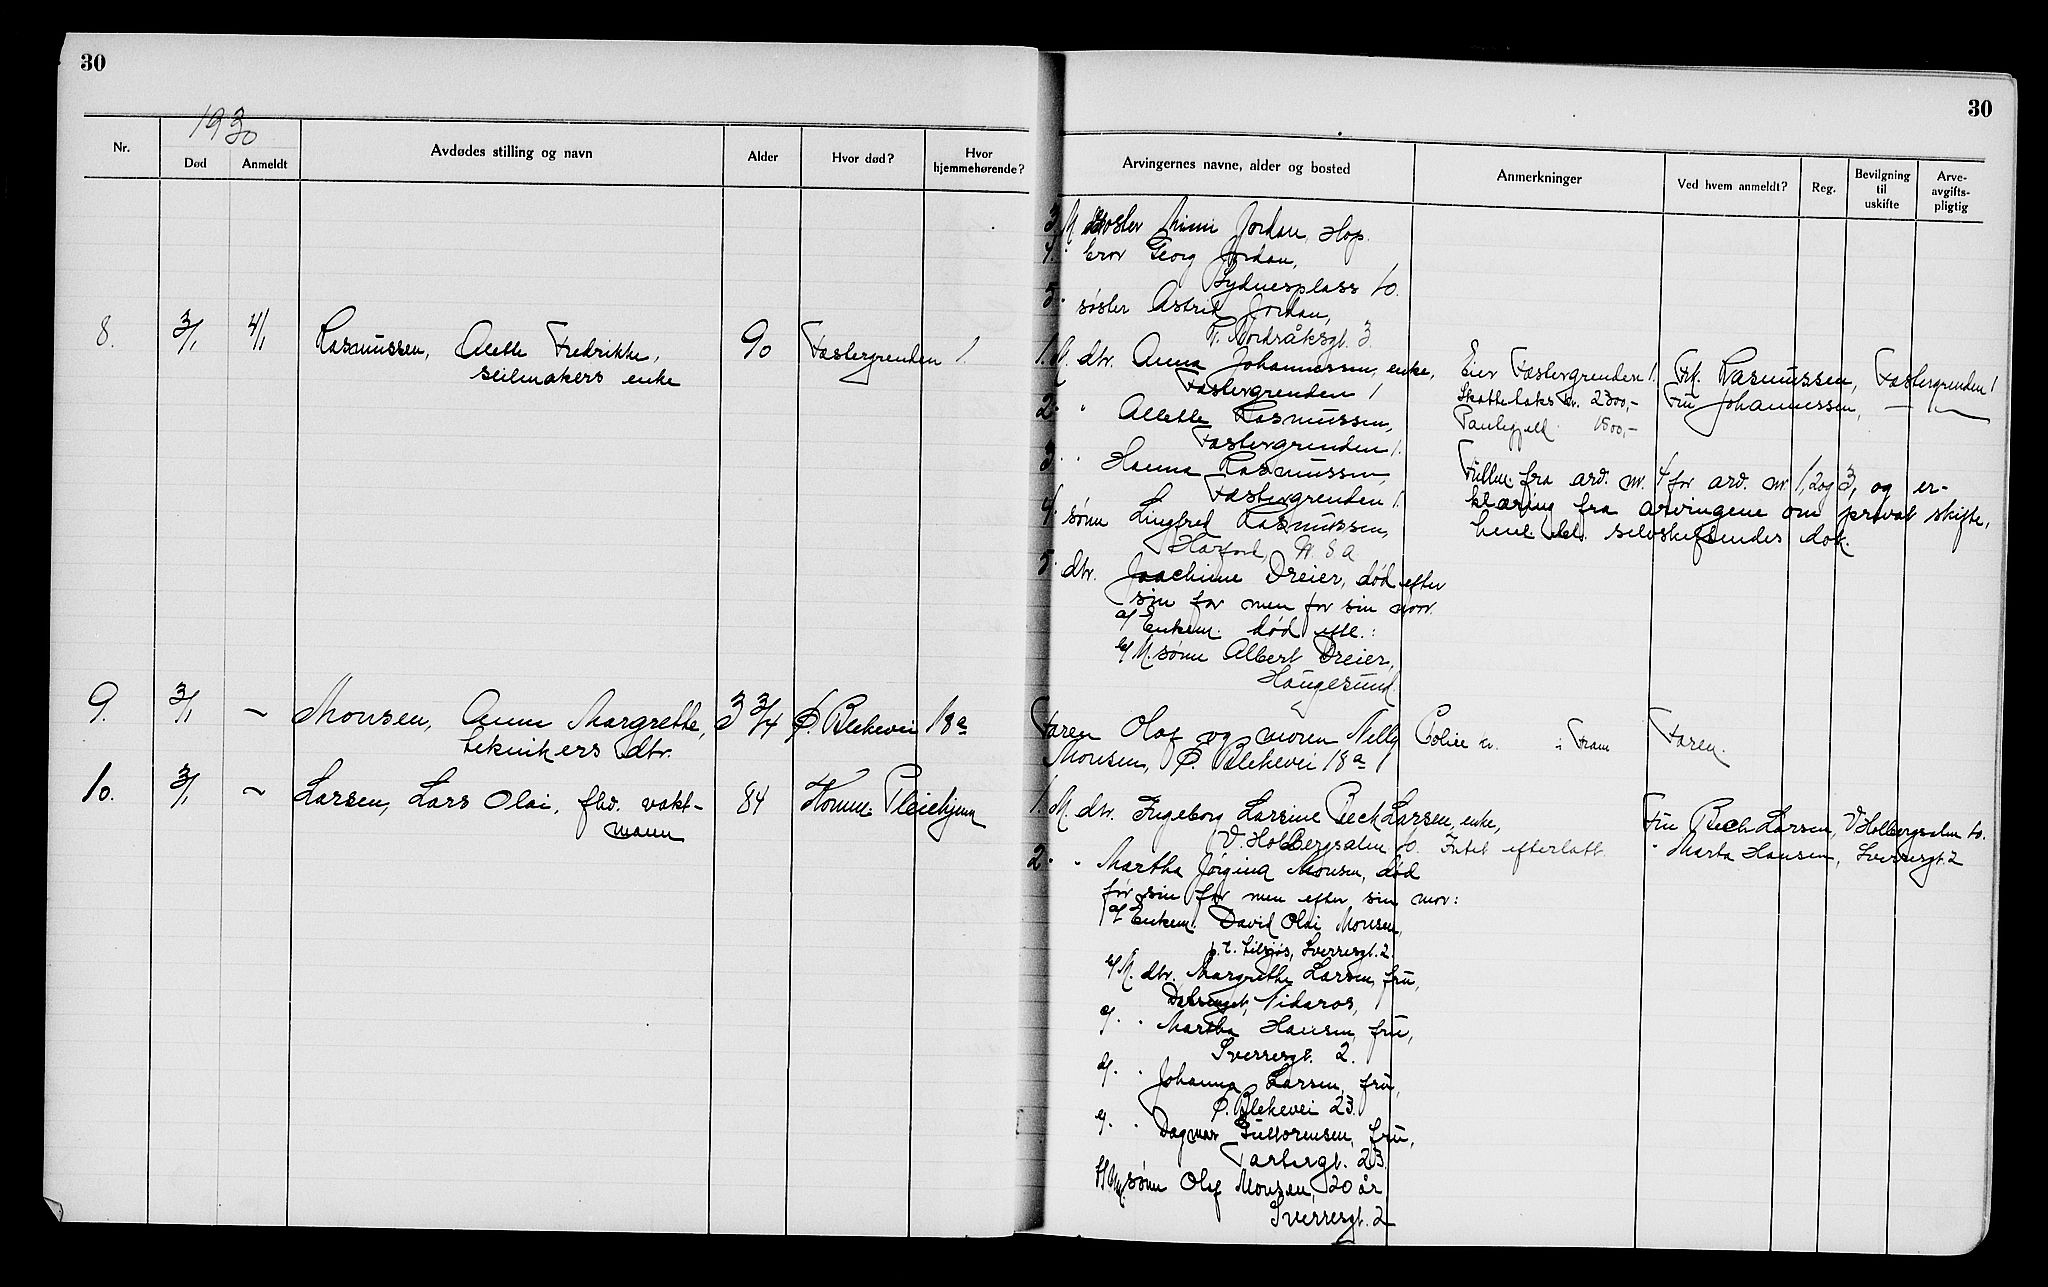 30
1930
Nr.
Død
Anmeldt
Avdødes stilling og navn
Alder
Hvor død?
Hvor hjemmehørende?
8. 3/1 4/1 Rasmussen, Alette Fredrikke, 90 Fæstergrenden 1
seilmakers enke
9. 3/1 – Monsen, Anne Margrethe, 3 3/4 Ø. Blekevei 18a
teknikers dtr.
10. 3/1 – Larsen, Lars Olai, fhv. vakt- 84 Komm. Pleiehjem
mann
30
Arvingernes navne, alder og bosted
Anmerkninger
Ved hvem anmeldt?
Reg.
Bevilgning til uskifte
Arve-avgifts-pligtig
3. M søster Mimi Jordan, Hop.
4. " bror Georg Jordan,
Sydnesplass 10.
5. " søster Astrid Jordan,
R. Nordråksgt. 3.
1. M. dtr. Anna Johannessen, enke,
Fæstergrenden 1
2. " " Alette Rasmussen,
Fæstergrenden 1.
3. " " Hanna Rasmussen,
Fæstergrenden 1.
4. " sønn Lingfred Rasmussen,
5. " dtr. Joachime Dreier, død efter
sin far men før sin mor.
a/ Enkem. død efte.:
b/ M. sønn Albert Dreier,
Haugesund.
Eier Fæstergrenden 1.
Skattetakst kr. 2300,-
Pantegjeld 1500,-
Frk. Rasmussen, Fæstergrenden 1
Fru Johannessen, — " —
Fullm. fra arv. nr. 4 for arv. nr 1, 2 og 3, og er-
klæring fra arvingene om privat skifte,
henl. bl. selvskiftendes dok.
Faren Olaf og moren Nelly
Monsen, Ø. Blekevei 18a
Faren.
1. M. dtr. Ingeborg Larsine Beck Larsen, enke,
V. Holbergsalm. 10. Intet efterlatt.
Fru Beck Larsen, V Holbergsalm 10.
" Marta Hansen, Sverresgt. 2
2. " " Martha Jørgina Monsen, død
før sin far men efter sin mor:
a/ Enkem. David Olai Monsen,
p.t. tilsjøs, Sverresgt. 2.
b/ M. dtr. Margrethe Larsen, fru,
Nidaros,
c/ " " Martha Hansen, fru,
Sverresgt. 2.
d/ " " Johanna Larsen, fru,
Ø. Blekevei 23.
e/ " " Dagmar Guttormsen, fru,
23.
f/ Um. sønn Olaf Monsen, 20 år
Sverresgt. 2